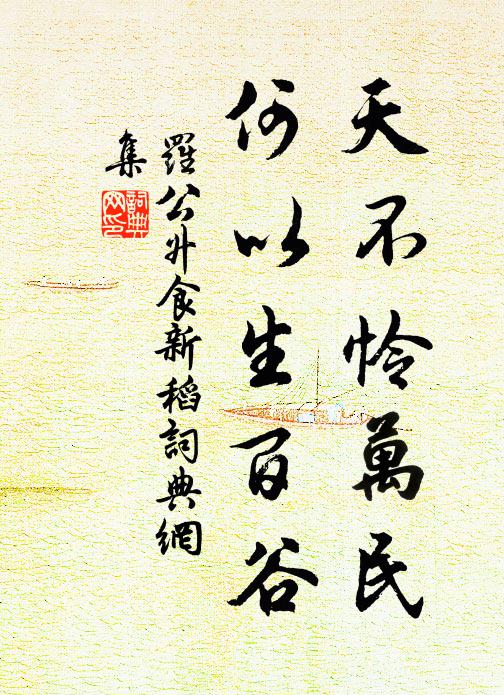 天不怜萬民
何以生百谷
羅公升食新稻詞典網
集
詞典
網印